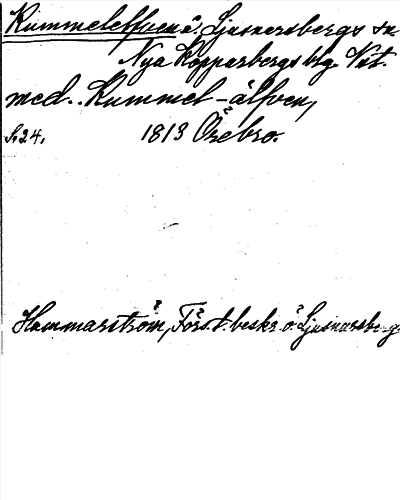 Rummelelfven å. Ljusnarsbergs sn.
Nya Kopparbergs blg. Vät.
med. Rummel-älfven,
S. 24. 1813 Örebro.
Hammarström, Förs. t. beskr. ö. Ljusnarsberg